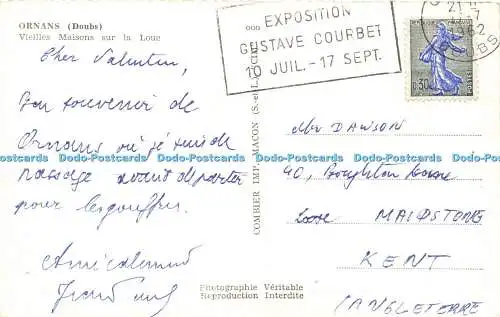 ORNANS (Doubs)
Vieilles Maisons sur la Loue
EXPOSITION
GUSTAVE COURBET
10 JUIL. - 17 SEPT.
21
1962
DOUBS
REPUBLIQUE FRANCAISE
0,30
POSTES
Cher Valentin,
Bon souvenir de
Ornans où je suis de
passage avant de partir
pour les gouffres.
Amicalement
COMBIER IMP. MACON (S.-et-L.) CIM
Mr DAWSON
40, Boughton Lane
Loose MAIDSTONE
KENT
(ANGLETERRE
Photographie Véritable
Reproduction Interdite
Dodo-Postcards Dodo-Postcards Dodo-Postcards Dodo-Postcards Dodo-Postcards